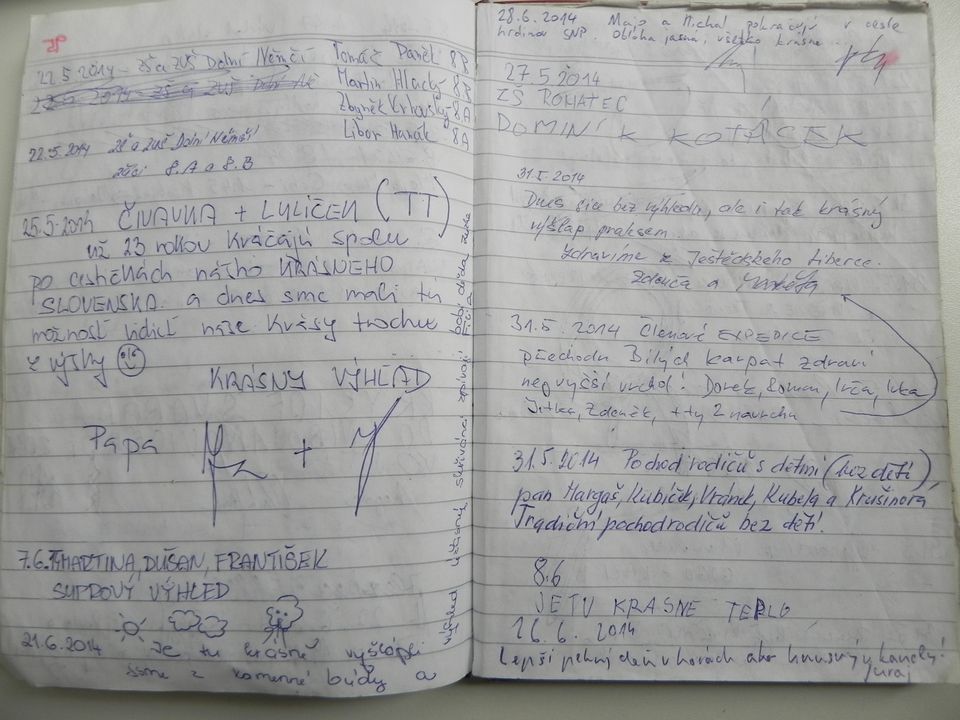 22.5 2014 - ZŠ a ZUŠ Dolní Němčí Tomáš Daněk 8B
Martin Hlacký 8B
Zbyněk 8.A
Libor Hanák 8A
22.5.2014 ZŠ a ZUŠ Dolní Němčí
žáci 8.A a 8.B
25.5.2014 ČIVAVKA + LULIČEK (TT)
už 23 rokov kráčajú spolu
po cestičkách nášho KRÁSNEHO
SLOVENSKA. a dnes sme mali tú
možnosť vidieť naše krásy trochu
z výšky
KRÁSNY VÝHĽAD
Papa
+
7.6. MARTINA, DUŠAN, FRANTIŠEK
SUPROVÝ VÝHLED
21.6.2014 Je tu krásně vyšlápli
jsme z kamenné búdy a
výhled úžasný skřivánci zpívají
28.6.2014 Majo a Michal pokračujú v ceste
hrdinov SNP. Obloha jasná, všetko krásne.
27.5 2014
ZŠ ROHATEC
DOMINIK KOTÁČEK
31.5.2014
Dnes sice bez výhledu, ale i tak krásný
výšlap pralesem.
Zdravíme z Ještědského Liberce.
a
31.5.2014 Členové EXPEDICE
přechodu Bílých Karpat zdraví
nejvyšší vrchol! Roman,
Jitka, Zdeněk, + ty 2 navrchu
31.5.2014 Pochod rodičů s dětmi (bez dětí)
pan Hargaš, Kubíček, Vránek, Kubela a Krušinová
Tradiční pochod rodičů bez dětí!
8.6
JETU KRASNE TEPLO
26.6.2014
Lepší pekný deň v horách ako hnusný v kancly!
Juraj